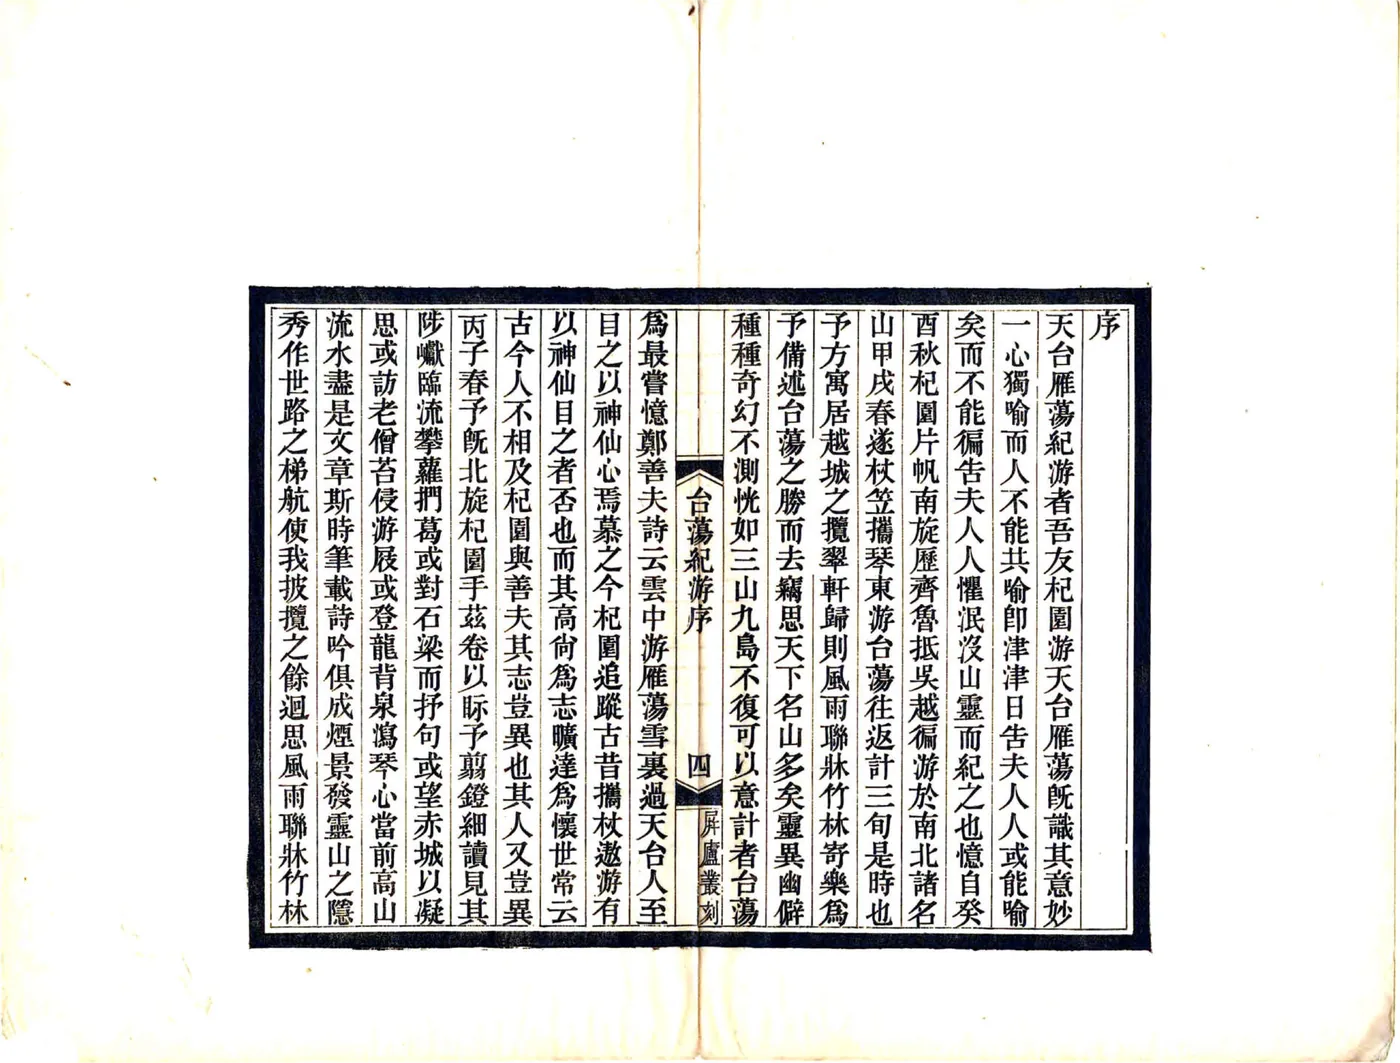 序
天台雁蕩紀游者吾友杞園游天台雁蕩旣識其意妙
一心獨喻而人不能共喻卽津津日告夫人人或能喻
矣而不能徧告夫人人懼泯沒山靈而紀之也憶自癸
酉秋杞園片帆南旋歷齊魯抵吳越徧游於南北諸名
山甲戌春遂杖笠攜琴東游台蕩往返計三旬是時也
予方寓居越城之攬翠軒歸則風雨聯牀竹林寄樂爲
予備述台蕩之勝而去竊思天下名山多矣靈異幽僻
種種奇幻不測恍如三山九島不復可以意計者台蕩
台蕩紀游序
四
屛廬叢刻
爲最嘗憶鄭善夫詩云雲中游雁蕩雪裏過天台人至
目之以神仙心焉慕之今杞園追蹤古昔攜杖遨游有
以神仙目之者否也而其高尙爲志曠達爲懷世常云
古今人不相及杞園與善夫其志豈異也其人又豈異
丙子春予旣北旋杞園手茲卷以眎予翦鐙細讀見其
陟巘臨流攀蘿捫葛或對石梁而抒句或望赤城以凝
思或訪老僧苔侵游屐或登龍背泉瀉琴心當前高山
流水盡是文章斯時筆載詩吟俱成煙景發靈山之隱
秀作世路之梯航使我披攬之餘迴思風雨聯牀竹林